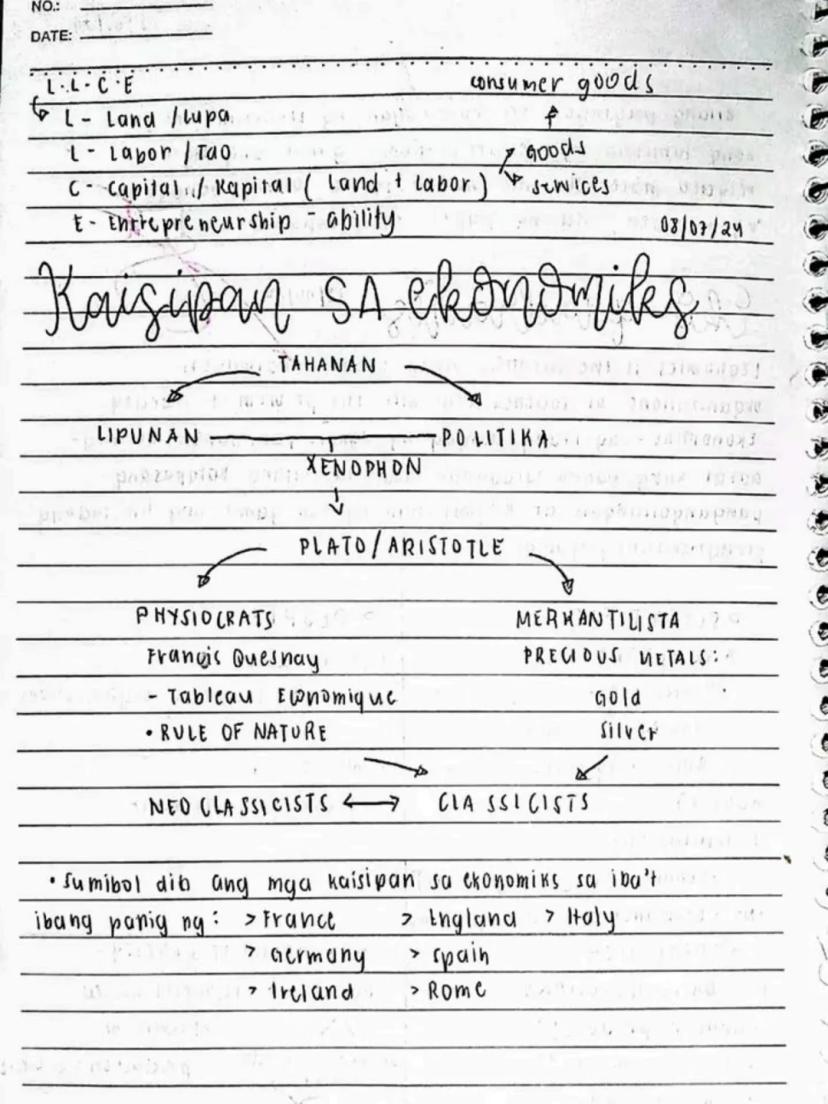 NO.:
DATE:
L.L.C.E consumer goods
L - Land / Lupa
L - Labor / Tao goods
C - Capital / Kapital ( land + labor ) services
E - Entrepreneurship - ability 08/07/24
Kaisipan SA ekonomiks
TAHANAN
LIPUNAN POLITIKA
XENOPHON
PLATO/ARISTOTLE
PHYSIOCRATS MERKANTILISTA
Francis Quesnay PRECIOUS METALS:
- Tableau Economique Gold
• RULE OF NATURE Silver
NEO CLASSICISTS CLASSICISTS
• Sumibol din ang mga kaisipan sa ekonomiks sa iba't
ibang panig ng: > France > England > Italy
> Germany > Spain
> Ireland > Rome